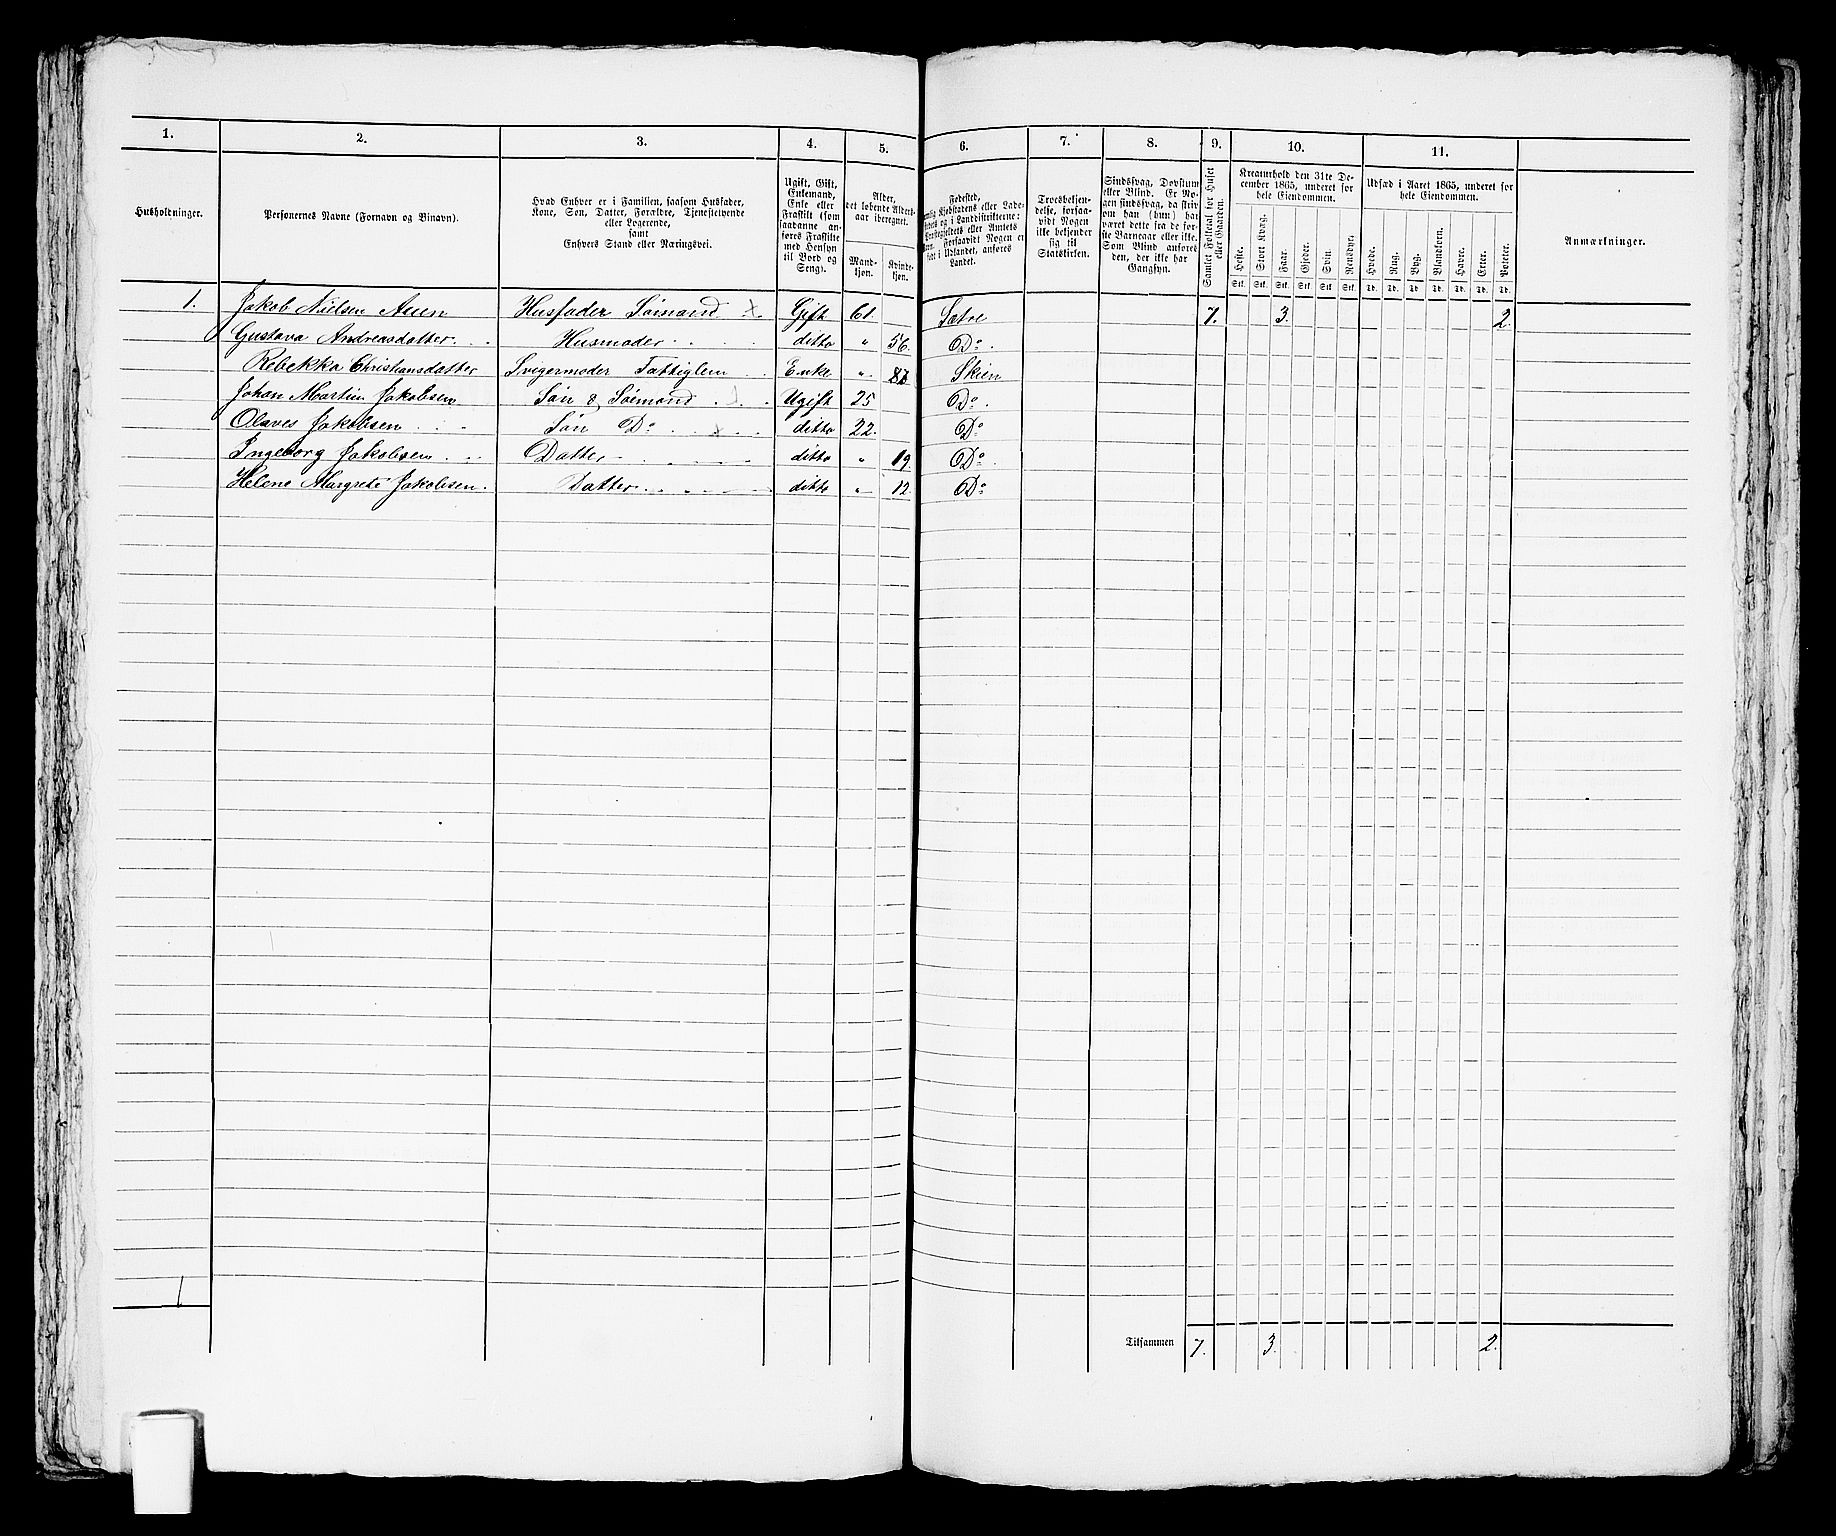 1. 2. 3. 4. 5. 6. 7. 8. 9. 10. 11.
Husholdninger.
Personernes Navne (Fornavn og Binavn).
Hvad Enhver er i Familien, saasom Husfader,
Kone, Søn, Datter, Forældre, Tjenestetyende
eller Logerende,
samt
Enhvers Stand eller Næringsvei.
Ugift, Gift,
Enkemand,
Enke eller
Fraskilt (som
saadanne an-
føres Fraskilte
med Hensyn
til Bord og
Seng).
Alder,
det løbende Alders-
aar iberegnet.
Mand-
kjøn.
Kvinde-
kjøn.
Fødested,
Kjøbstadens eller Lade-
i Landdistrikterne:
eller Amtets
Forsaavidt Nogen er
født i Udlandet, anføres
Landet.
Troesbekjen-
delse, forsaa-
vidt Nogen
ikke bekjender
sig til
Statskirken.
Sindssvag, Døvstum
eller Blind. Er No-
gen sindssvag, da skriv
om han (hun) har
været dette fra de før-
ste Barneaar eller ikke.
Som Blind anføres
den, der ikke har
Gangsyn.
Samlet Folketal for Huset
eller Gaarden.
Kreaturhold den 31te De-
cember 1865, underet for
hele Eiendommen.
Heste. Stort Kvæg. Faar. Gjeder. Svin. Rensdyr.
Stk. Stk. Stk. Stk. Stk. Stk.
Udsæd i Aaret 1865, underet for
hele Eiendommen.
Hvede. Rug. Byg. Blandkorn. Havre. Erter. Poteter.
Td. Td. Td. Td. Td. Td. Td.
Anmærkninger.
1. Jakob Nielsen Auen Husfader Sømand x Gift 61. Sætre 7. 3. 2.
Gustava Andreasdatter Husmoder ditto " 56. Do.
Rebekka Christiansdatter Svigermoder Fattiglem Enke " Skien
Johan Martin Jakobsen Søn & Sømand Ugift 25 Do.
Olaves Jakobsen Søn Do x ditto 22. Do
Ingeborg Jakobsen Datter ditto " 19. Do.
Helene Margrete Jakobsen. Datter ditto " 12. Do
1
Tilsammen 7. 3. 2.